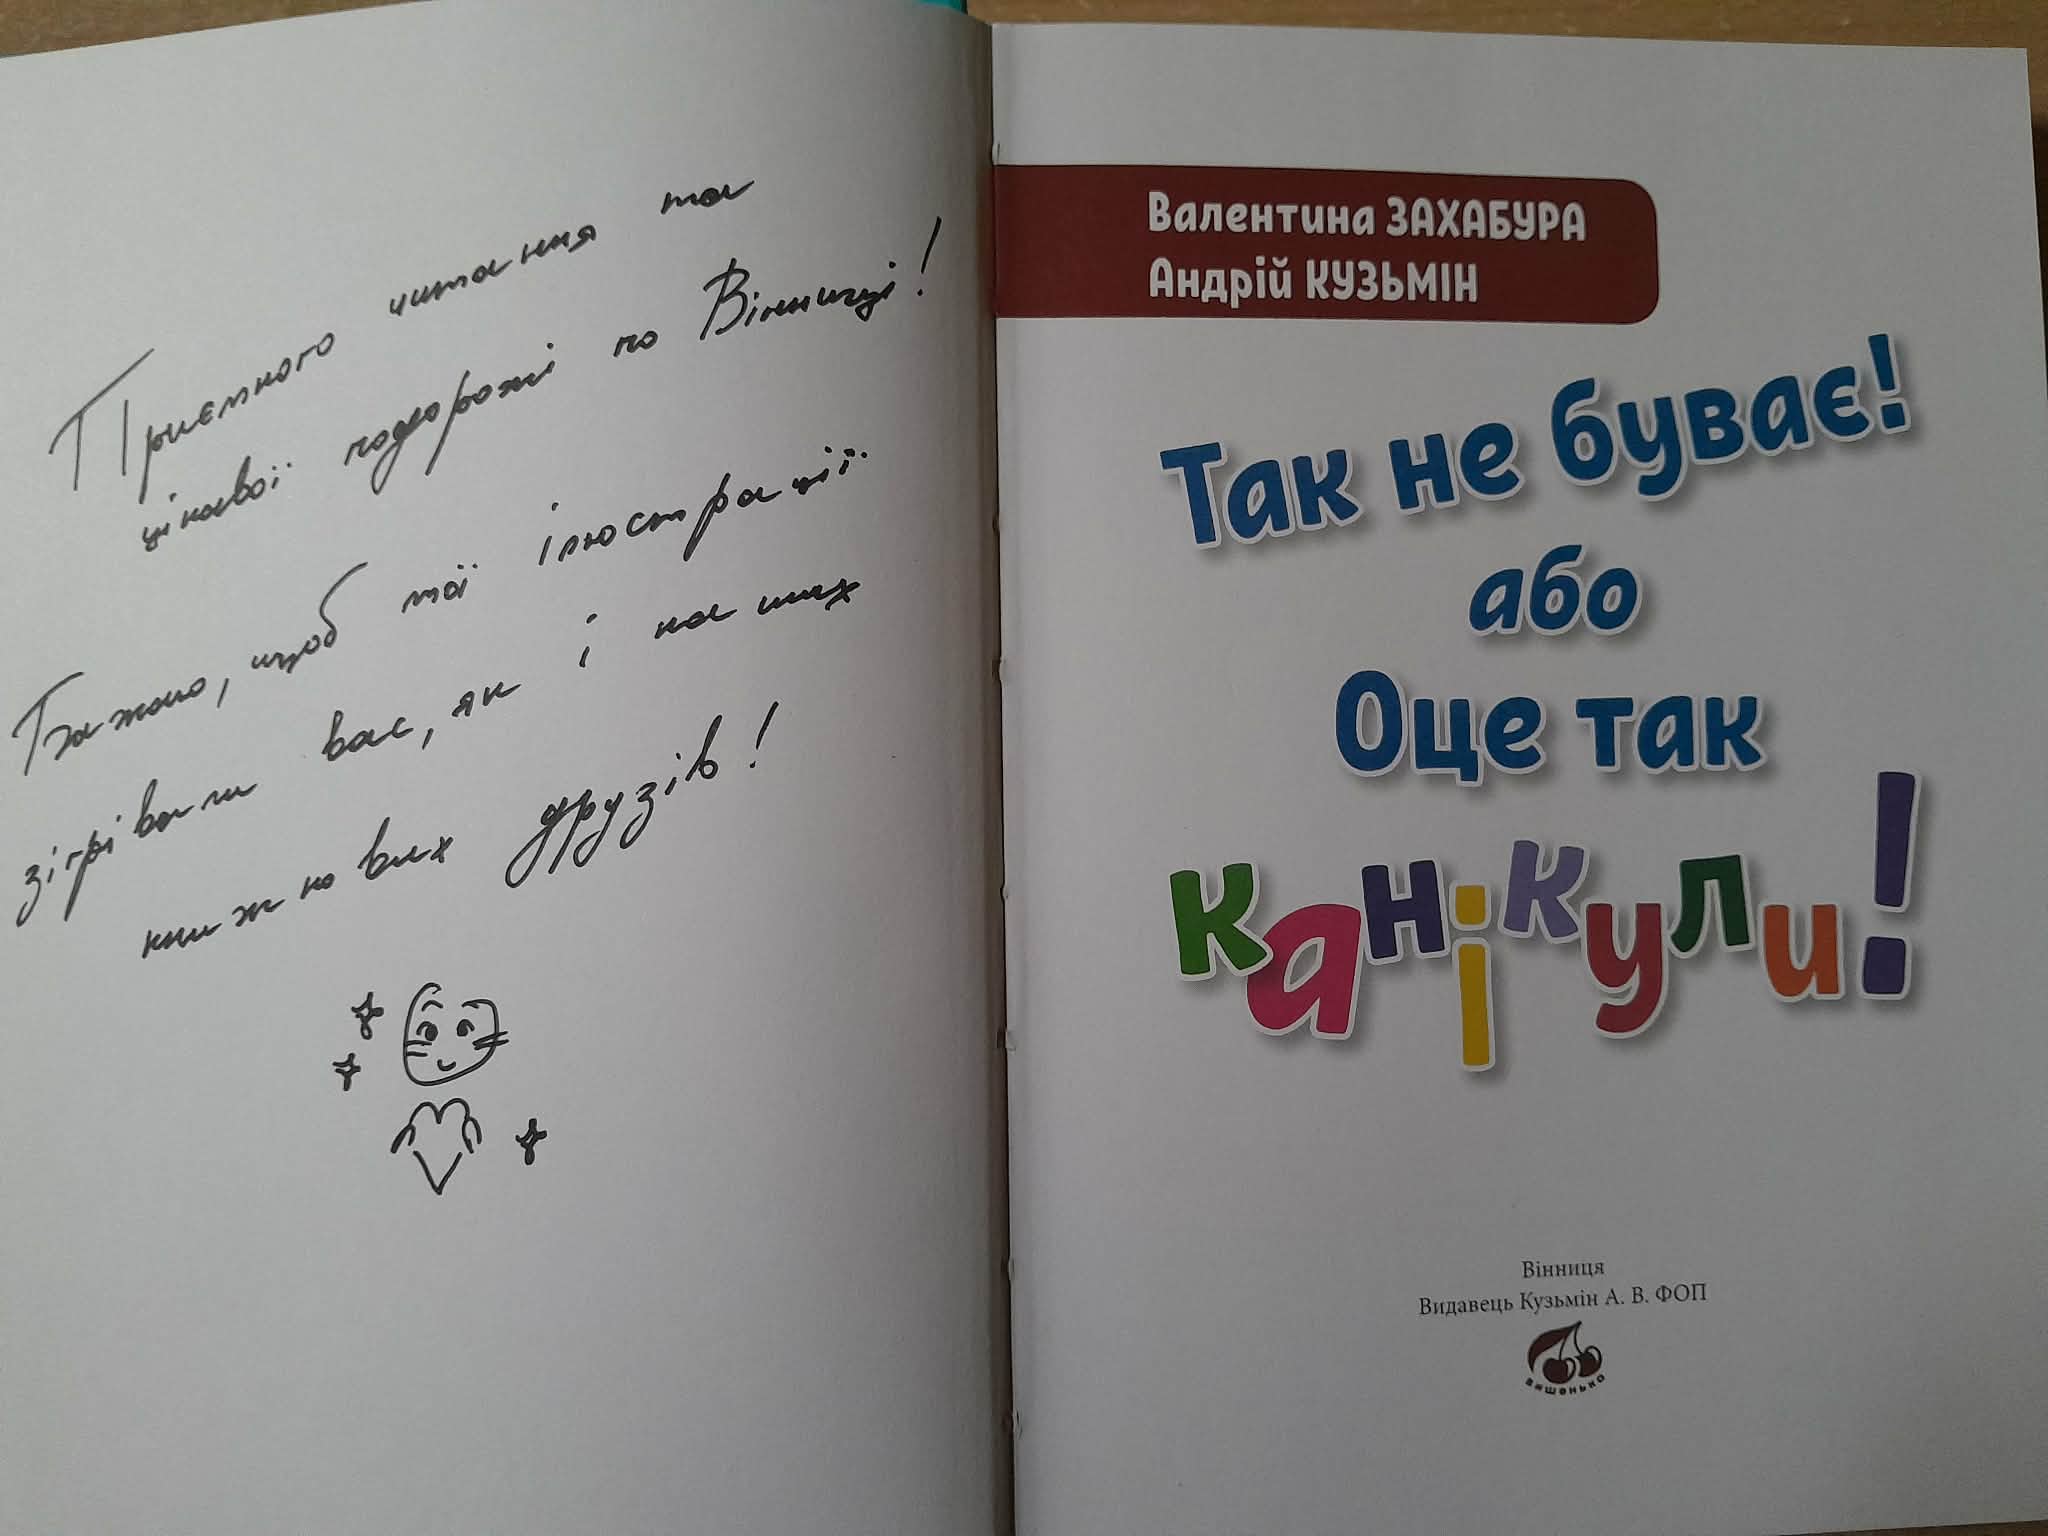 Приємного читання та
цікавої подорожі по Вінниці!
Бажаю, щоб мої ілюстрації
зігрівали вас, як і наших
книжкових друзів!
Валентина ЗАХАБУРА
Андрій КУЗЬМІН
Так не буває!
або
Оце так
канікули!
Вінниця
Видавець Кузьмін А. В. ФОП
вишенька